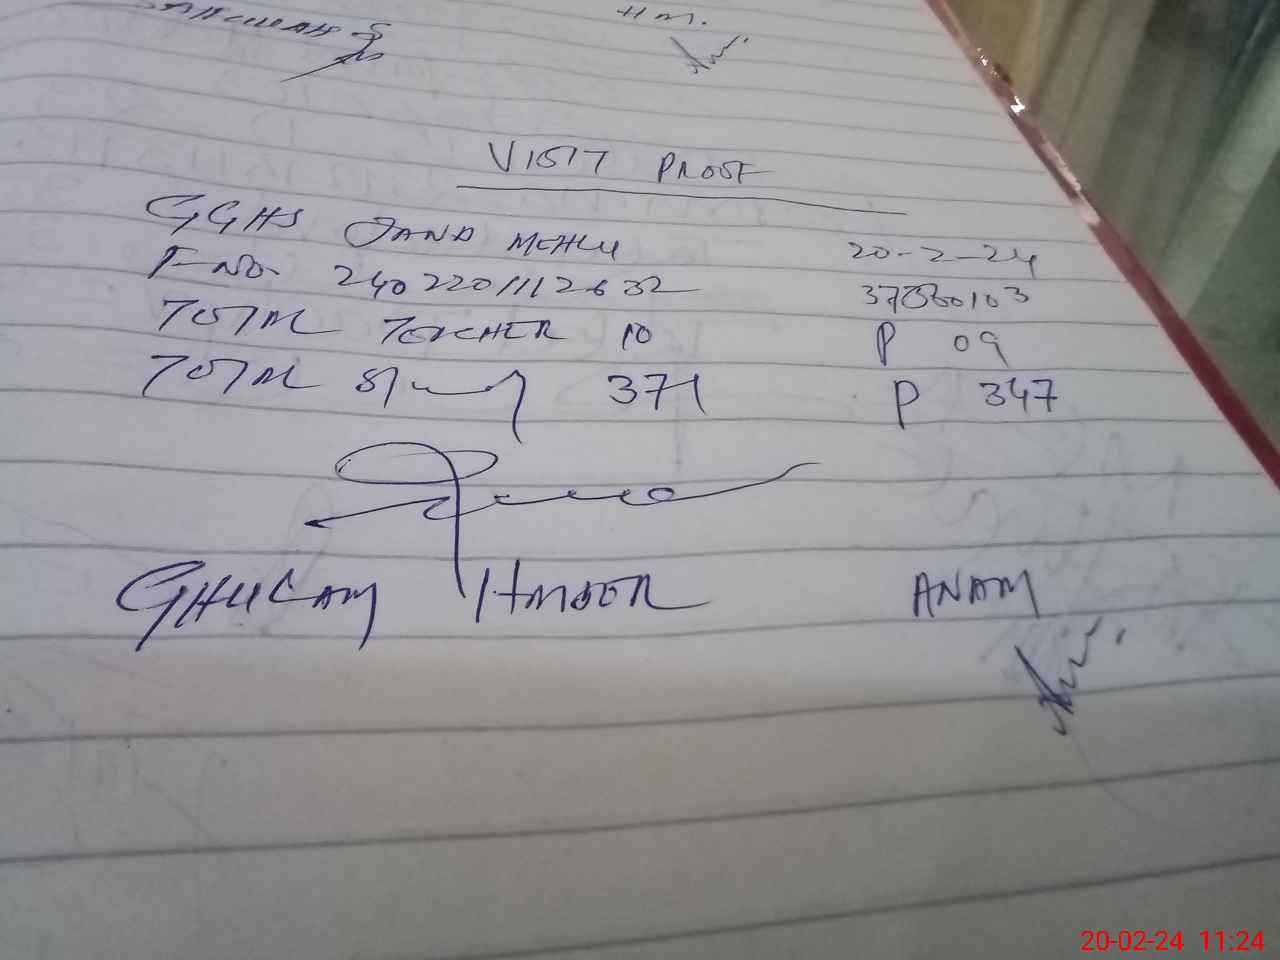 H M.
VISIT PROOF
GGHS JAND MEHLU 20-2-24
F-NO. 2402201112632 37360103
TOTAL TEACHER 10 P 09
TOTAL 371 P 347
GHULAM HAIDER ANAM
20-02-24 11:24